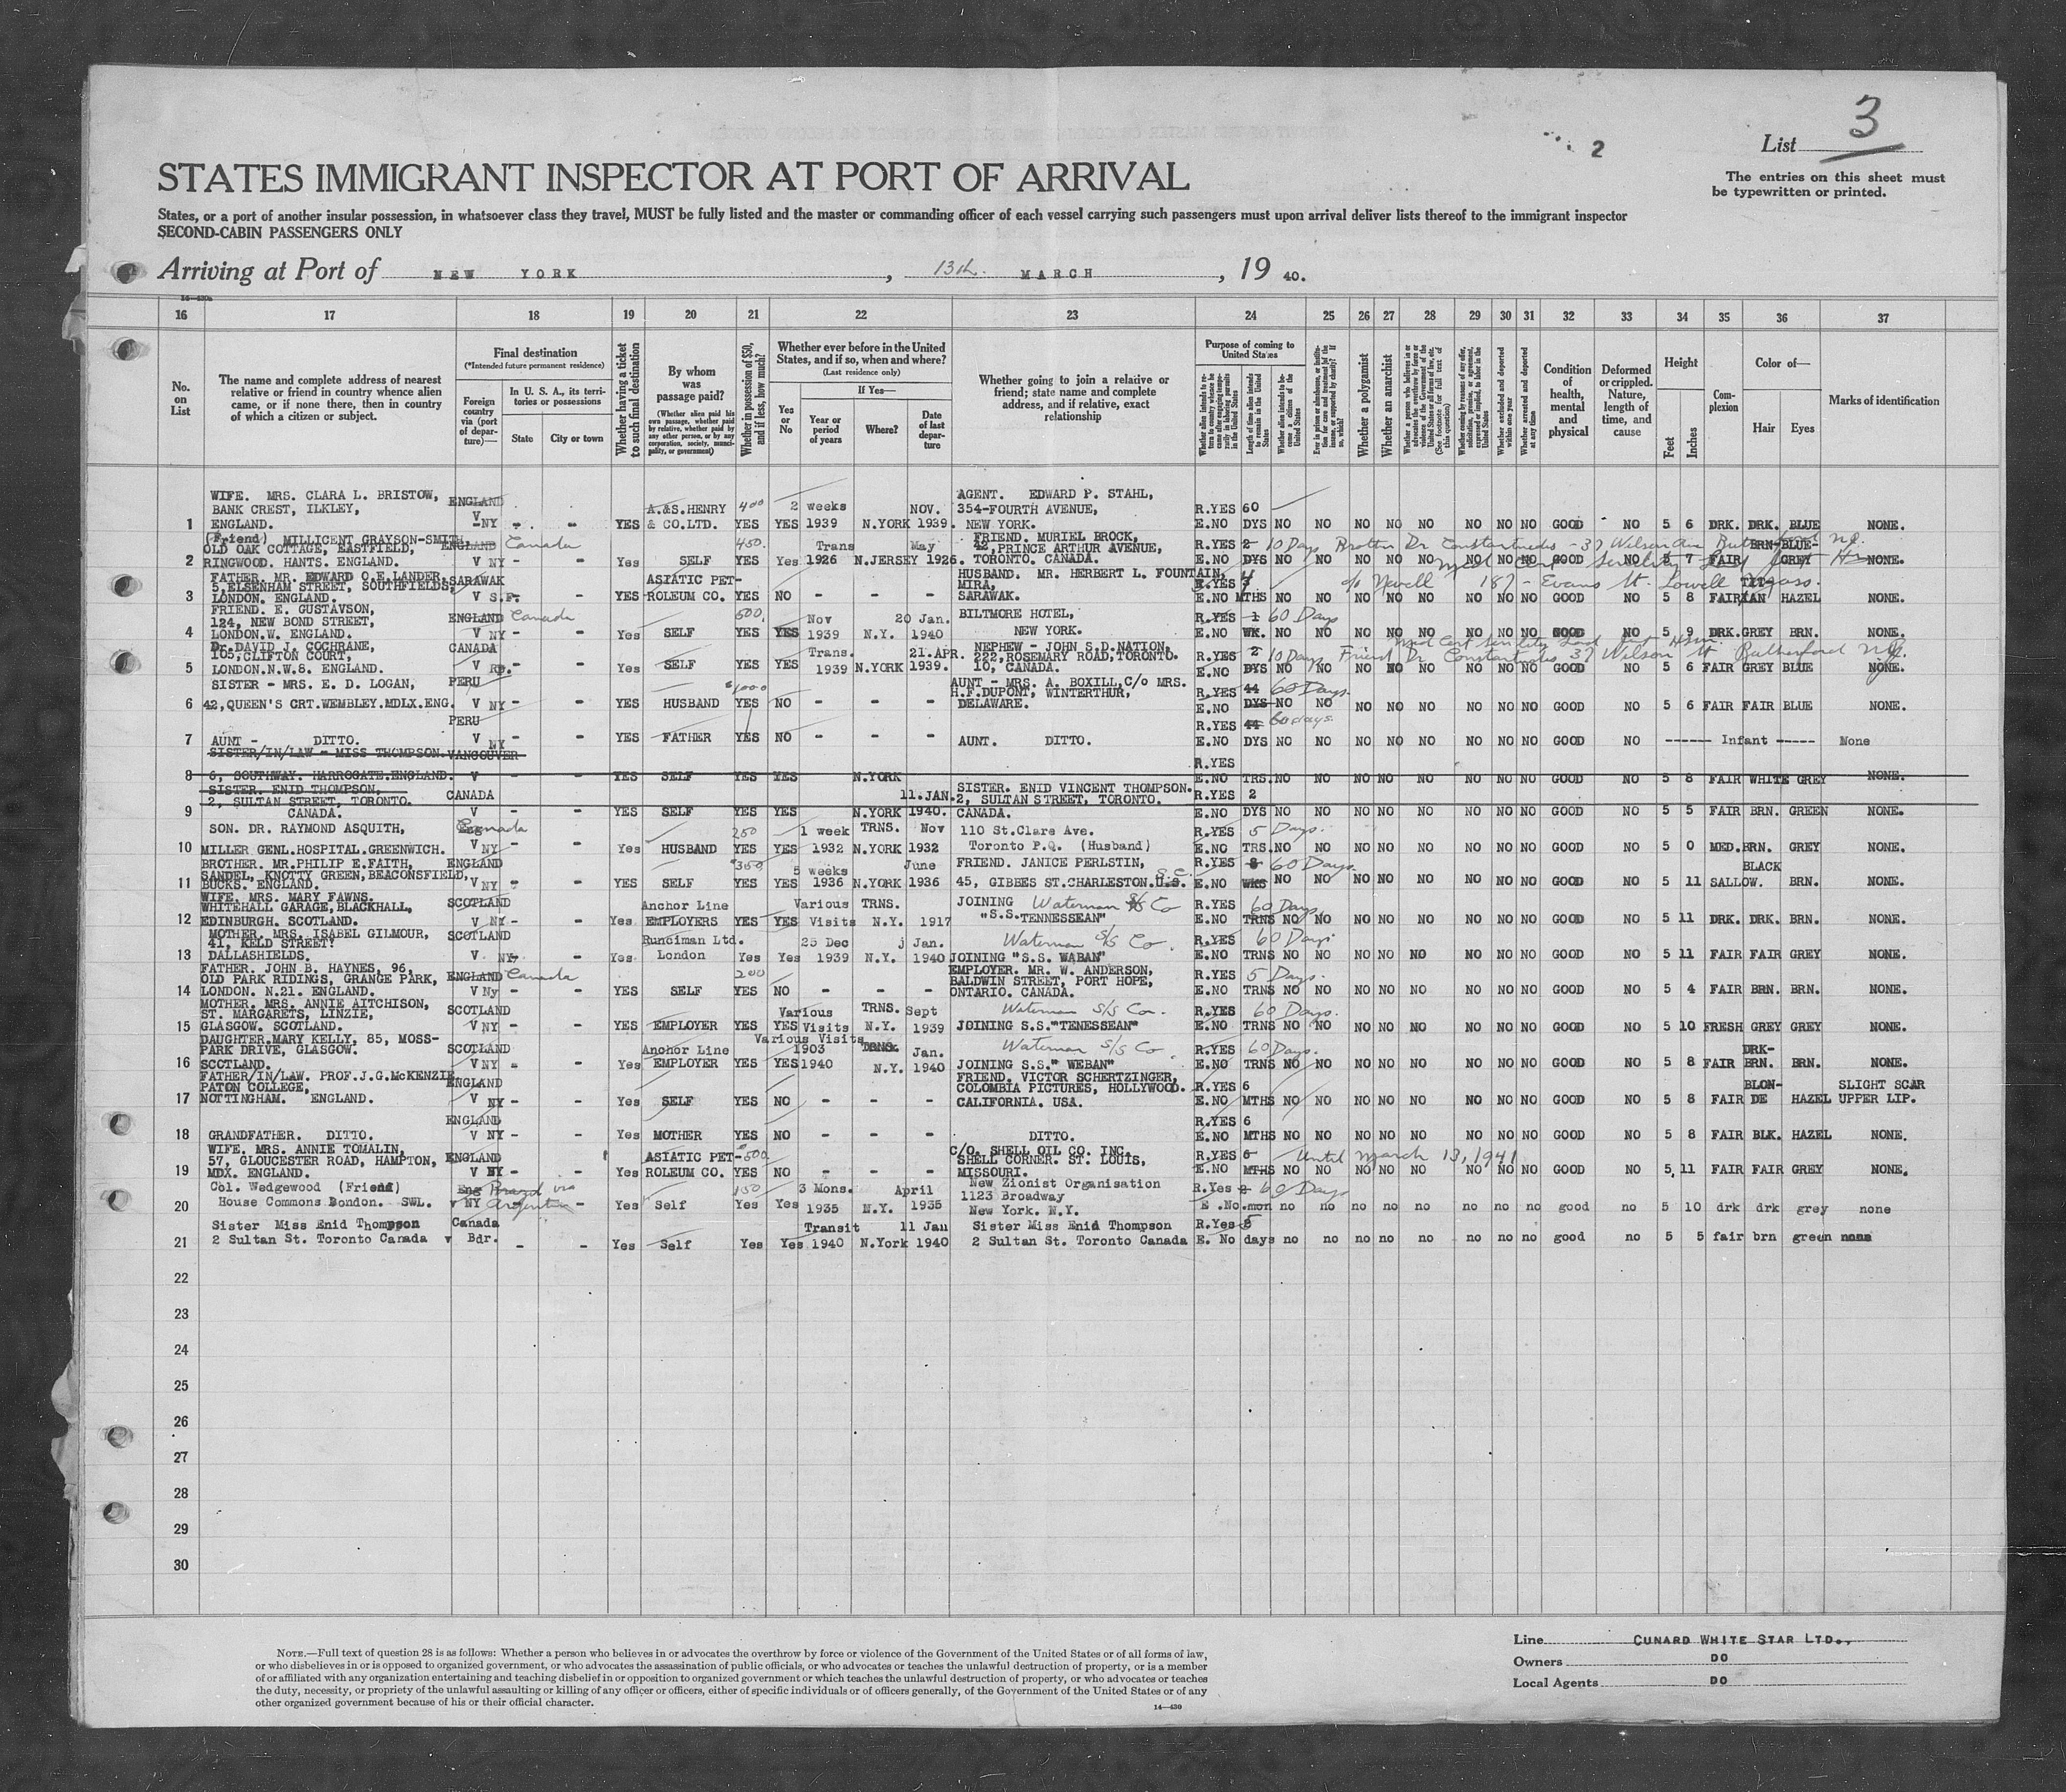 3
2
List
The entries on this sheet must
be typewritten or printed.
STATES IMMIGRANT INSPECTOR AT PORT OF ARRIVAL
States, or a port of another insular possession, in whatsoever class they travel, MUST be fully listed and the master or commanding officer of each vessel carrying such passengers must upon arrival deliver lists thereof to the immigrant inspector
SECOND-CABIN PASSENGERS ONLY
Arriving at Port of NEW YORK, 13th. MARCH, 19 40.
16 17 18 19 20 21 22 23 24 25 26 27 28 29 30 31 32 33 34 35 36 37
No. on List
The name and complete address of nearest
relative or friend in country whence alien
came, or if none there, then in country
of which a citizen or subject.
Final destination
(*Intended future permanent residence)
Foreign country via (port of departure)—
In U. S. A., its territories or possessions
State City or town
Whether having a ticket to such final destination
By whom was passage paid?
(Whether alien paid his own passage, whether paid by relative, whether paid by any other person, or by any corporation, society, municipality, or government)
Whether in possession of $50, and if less, how much?
Whether ever before in the United States, and if so, when and where?
(Last residence only)
Yes or No
If Yes—
Year or period of years
Where?
Date of last departure
Whether going to join a relative or
friend; state name and complete
address, and if relative, exact
relationship
Purpose of coming to United States
Whether a polygamist
Whether an anarchist
Condition of health, mental and physical
Deformed or crippled. Nature, length of time, and cause
Height
Feet Inches
Complexion
Color of—
Hair Eyes
Marks of identification
WIFE. MRS. CLARA L. BRISTOW, ENGLAND A.&S.HENRY 400 2 weeks NOV. AGENT. EDWARD P. STAHL,
BANK CREST, ILKLEY, 354-FOURTH AVENUE, R.YES 60
1 ENGLAND. V NY - - YES & CO.LTD. YES YES 1939 N.YORK 1939. NEW YORK. E.NO DYS NO NO NO NO NO NO NO NO GOOD NO 5 6 DRK. DRK. BLUE NONE.
(Friend) MILLICENT GRAYSON-SMITH, ENGLAND Canada 450. Trans May FRIEND. MURIEL BROCK,
OLD OAK COTTAGE, EASTFIELD, 42, PRINCE ARTHUR AVENUE, R.YES 2 10 Days Brother Dr Constantinides - 37 Wilson Ave BRN- BLUE-
2 RINGWOOD. HANTS. ENGLAND. V NY - - Yes SELF YES Yes 1926 N.JERSEY 1926. TORONTO. CANADA. E.NO DYS NO NO NO NO NO NO NO NO GOOD NO 5 7 FAIR GREY NONE.
FATHER. MR. EDWARD O.E.LANDER, SARAWAK ASIATIC PET- HUSBAND. MR. HERBERT L. FOUNTAIN,
5, ELSENHAM STREET, SOUTHFIELDS, MIRA, R.YES c/o Newell 187 - Evans St. Lowell Mass.
3 LONDON. ENGLAND. V S.F. - YES ROLEUM CO. YES NO - - - SARAWAK. E.NO MTHS NO NO NO NO NO NO NO NO GOOD NO 5 8 FAIR HAZEL NONE.
FRIEND. E. GUSTAVSON, ENGLAND Canada 500. Nov 20 Jan. BILTMORE HOTEL,
124, NEW BOND STREET, R.YES 1 60 Days
4 LONDON.W. ENGLAND. V NY - - Yes SELF YES YES 1939 N.Y. 1940 NEW YORK. E.NO WK. NO NO NO NO NO NO NO NO GOOD NO 5 9 DRK. GREY BRN. NONE.
Dr. DAVID J. COCHRANE, CANADA Trans. 21.APR. NEPHEW - JOHN S.D.NATION,
105, CLIFTON COURT, 222, ROSEMARY ROAD, TORONTO. R.YES 2 10 Days Friend Dr Constantinides 37 Wilson St Rutherford N.J.
5 LONDON.N.W.8. ENGLAND. V - Yes SELF YES YES 1939 N.YORK 1939. 10, CANADA. DYS NO NO NO NO NO NO NO NO GOOD NO 5 6 FAIR GREY BLUE NONE.
SISTER - MRS. E. D. LOGAN, PERU $1000 AUNT - MRS. A. BOXILL, C/o MRS.
H.F.DUPONT, WINTERTHUR, R.YES 44 60 Days.
6 42, QUEEN'S CRT. WEMBLEY. MDLX. ENG. V NY - - YES HUSBAND YES NO - - - DELAWARE. E.NO DYS NO NO NO NO NO NO NO NO GOOD NO 5 6 FAIR FAIR BLUE NONE.
PERU R.YES 44 60 days
7 AUNT - DITTO. V NY - YES FATHER YES NO - - - AUNT. DITTO. E.NO DYS NO NO NO NO NO NO NO NO GOOD NO ------ Infant ----- None
SISTER/IN/LAW - MISS THOMPSON. VANCOUVER R.YES
8 6, SOUTHWAY. HARROGATE. ENGLAND. V - - YES SELF YES YES N.YORK E.NO TRS. NO NO NO NO NO NO NO NO GOOD NO 5 8 FAIR WHITE GREY NONE.
SISTER. ENID THOMPSON, CANADA 11.JAN. SISTER. ENID VINCENT THOMPSON.
2, SULTAN STREET, TORONTO. 2, SULTAN STREET, TORONTO. R.YES 2
9 CANADA. V - - YES SELF YES YES N.YORK 1940. CANADA. E.NO DYS NO NO NO NO NO NO NO NO GOOD NO 5 5 FAIR BRN. GREEN NONE.
SON. DR. RAYMOND ASQUITH, Canada 250 1 week TRNS. Nov 110 St.Clare Ave. R.YES 5 Days.
10 MILLER GENL.HOSPITAL.GREENWICH. V NY - - Yes HUSBAND YES YES 1932 N.YORK 1932 Toronto P.Q. (Husband) E.NO TRS. NO NO NO NO NO NO NO NO GOOD NO 5 0 MED. BRN. GREY NONE.
BROTHER. MR.PHILIP E.FAITH, ENGLAND $350 5 weeks June FRIEND. JANICE PERLSTIN, R.YES 8 60 Days. BLACK
SANDEL, KNOTTY GREEN, BEACONSFIELD, S.C.
11 BUCKS. ENGLAND. V NY - - YES SELF YES YES 1936 N.YORK 1936 45, GIBBES ST.CHARLESTON.U.S. E.NO WKS NO NO NO NO NO NO NO NO GOOD NO 5 11 SALLOW. BRN. NONE.
WIFE. MRS. MARY FAWNS. SCOTLAND Anchor Line Various TRNS. JOINING Waterman S/S Co R.YES 60 Days
WHITEHALL GARAGE, BLACKHALL,
12 EDINBURGH. SCOTLAND. V NY - - Yes. EMPLOYERS YES YES Visits N.Y. 1917 "S.S. TENNESSEAN" E.NO TRNS NO NO NO NO NO NO NO NO GOOD NO 5 11 DRK. DRK. BRN. NONE.
MOTHER. MRS. ISABEL GILMOUR, SCOTLAND Runciman Ltd. 25 Dec j Jan. Waterman S/S Co. R.YES 60 Days
41, KELD STREET!
13 DALLASHIELDS. V NY - - Yes London Yes Yes 1939 N.Y. 1940 JOINING "S.S. WABAN" E.NO TRNS NO NO NO NO NO NO NO NO GOOD NO 5 11 FAIR FAIR GREY NONE.
FATHER. JOHN B. HAYNES, 96, ENGLAND Canada 200 EMPLOYER. MR. W. ANDERSON, R.YES 5 Days.
OLD PARK RIDINGS, GRANGE PARK, BALDWIN STREET, PORT HOPE,
14 LONDON. N.21. ENGLAND. V Ny - - YES SELF YES NO - - - ONTARIO. CANADA. E.NO TRNS NO NO NO NO NO NO NO NO GOOD NO 5 4 FAIR BRN. BRN. NONE.
MOTHER. MRS. ANNIE AITCHISON, SCOTLAND Various TRNS. Sept Waterman S/S Co. R.YES 60 Days.
ST. MARGARETS, LINZIE,
15 GLASGOW. SCOTLAND. V NY - - YES EMPLOYER YES YES Visits N.Y. 1939 JOINING S.S."TENESSEAN" E.NO TRNS NO NO NO NO NO NO NO NO GOOD NO 5 10 FRESH GREY GREY NONE.
DAUGHTER. MARY KELLY, 85, MOSS- SCOTLAND Anchor Line Various Visits 1903 TRNS. Jan. Waterman S/S Co. R.YES 60 Days. DRK-
PARK DRIVE, GLASGOW.
16 SCOTLAND. V NY - - Yes EMPLOYER YES YES 1940 N.Y. 1940 JOINING S.S." WEBAN" E.NO TRNS NO NO NO NO NO NO NO NO GOOD NO 5 8 FAIR BRN. BRN. NONE.
FATHER/IN/LAW. PROF.J.G.McKENZIE, ENGLAND FRIEND. VICTOR SCHERTZINGER, R.YES 6 BLON- SLIGHT SCAR
PATON COLLEGE, COLOMBIA PICTURES, HOLLYWOOD.
17 NOTTINGHAM. ENGLAND. V NY - - Yes SELF YES NO - - - CALIFORNIA. USA. E.NO MTHS NO NO NO NO NO NO NO NO GOOD NO 5 8 FAIR DE HAZEL UPPER LIP.
ENGLAND R.YES 6
18 GRANDFATHER. DITTO. V NY - - Yes MOTHER YES NO - - - DITTO. E.NO MTHS NO NO NO NO NO NO NO NO GOOD NO 5 8 FAIR BLK. HAZEL NONE.
WIFE. MRS. ANNIE TOMALIN, ENGLAND ASIATIC PET- 500 C/O. SHELL OIL CO. INC. R.YES 6 Until March 13, 1941
57, GLOUCESTER ROAD, HAMPTON, SHELL CORNER. ST. LOUIS,
19 MDX. ENGLAND. V NY - - Yes ROLEUM CO. YES NO - - - MISSOURI. E.NO MTHS NO NO NO NO NO NO NO NO GOOD NO 5 11 FAIR FAIR GREY NONE.
Col. Wedgewood (Friend) Eng Brazil via 150 3 Mons. April New Zionist Organisation R.Yes 2 60 Days
1123 Broadway
20 House Commons London. SWL. v NY Argentina - Yes Self Yes Yes 1935 N.Y. 1935 New York. N.Y. E .No mon no no no no no no no no good no 5 10 drk drk grey none
Sister Miss Enid Thompson Canada Transit 11 Jan Sister Miss Enid Thompson R.Yes 5
21 2 Sultan St. Toronto Canada v Bdr. - - Yes Self Yes Yes 1940 N.York 1940 2 Sultan St. Toronto Canada E. No days no no no no no no no no good no 5 5 fair brn green none
22
23
24
25
26
27
28
29
30
NOTE.—Full text of question 28 is as follows: Whether a person who believes in or advocates the overthrow by force or violence of the Government of the United States or of all forms of law,
or who disbelieves in or is opposed to organized government, or who advocates the assassination of public officials, or who advocates or teaches the unlawful destruction of property, or is a member
of or affiliated with any organization entertaining and teaching disbelief in or opposition to organized government or which teaches the unlawful destruction of property, or who advocates or teaches
the duty, necessity, or propriety of the unlawful assaulting or killing of any officer or officers, either of specific individuals or of officers generally, of the Government of the United States or of any
other organized government because of his or their official character.
14—430
Line CUNARD WHITE STAR LTD.,
Owners DO
Local Agents DO